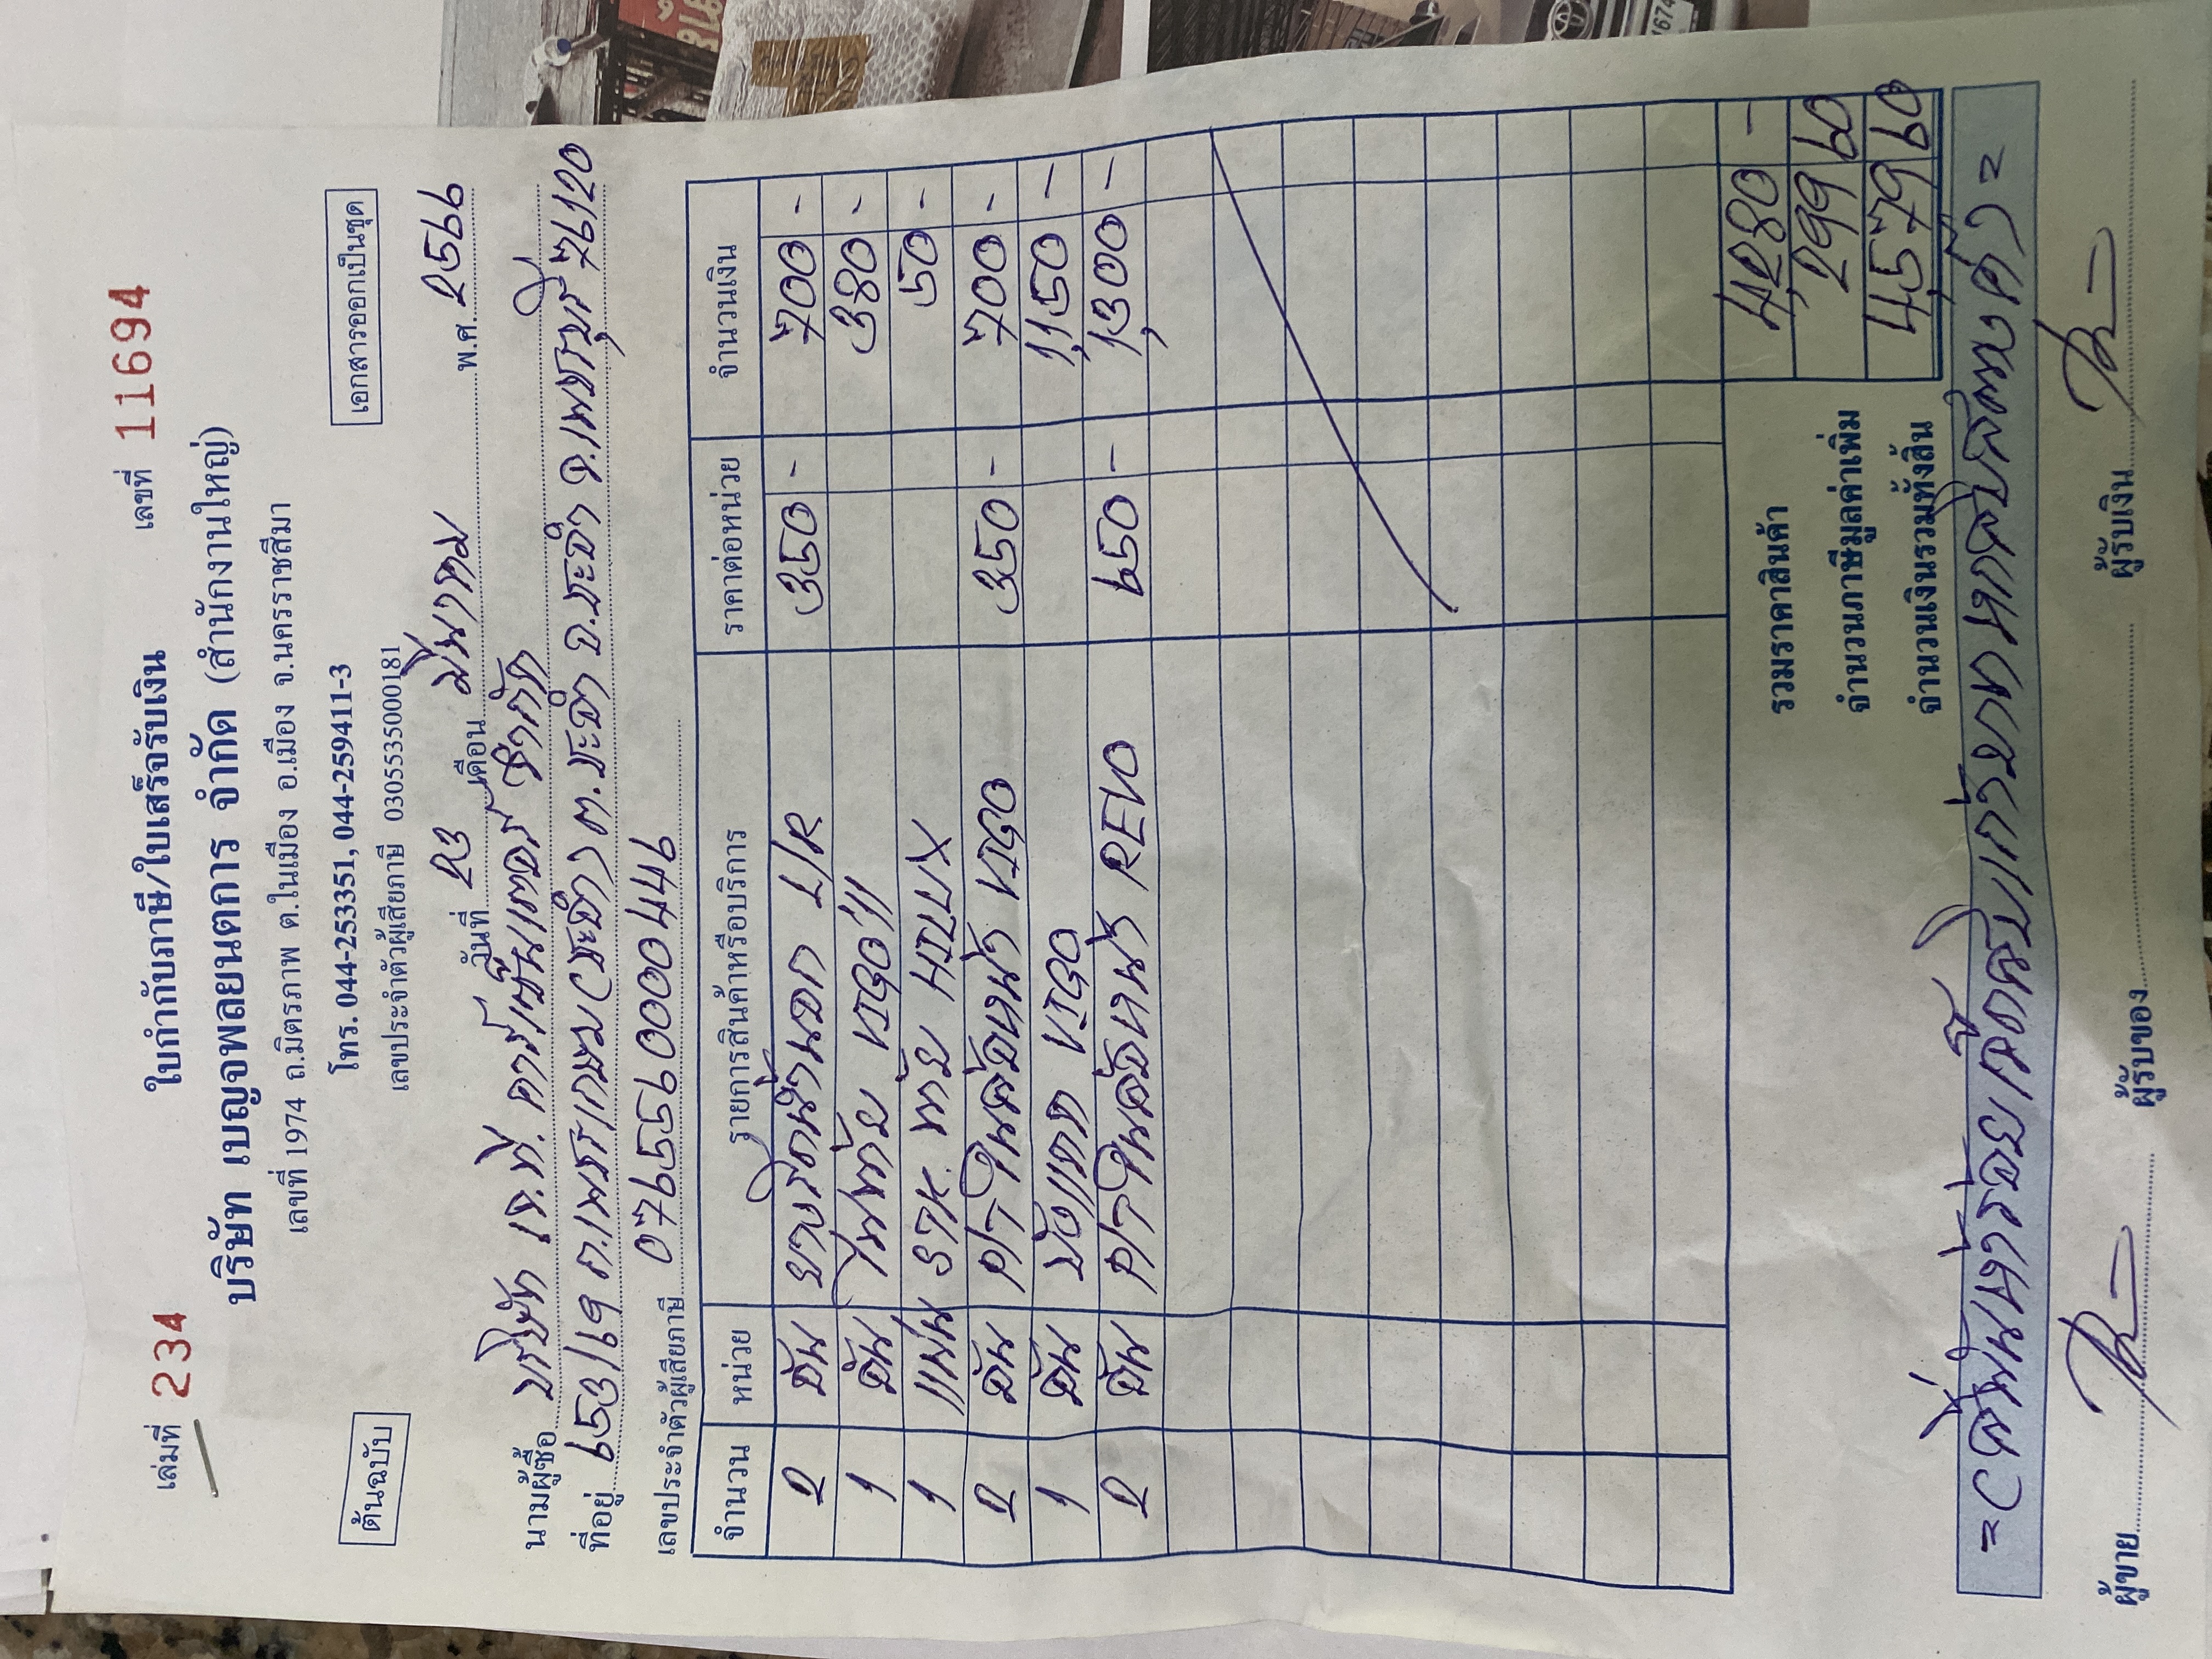 เล่มที่ 234 ใบกำกับภาษี/ใบเสร็จรับเงิน เลขที่ 11694
บริษัท เบญจพลยนตการ จำกัด (สำนักงานใหญ่)
เลขที่ 1974 ถ.มิตรภาพ ต.ในเมือง อ.เมือง จ.นครราชสีมา
ต้นฉบับ โทร. 044-253351, 044-259411-3 เอกสารออกเป็นชุด
เลขประจำตัวผู้เสียภาษี 0305535000181
วันที่ 23 เดือน มีนาคม พ.ศ. 2566
นามผู้ซื้อ บริษัท เจ.ที. คาร์เซ็นเตอร์ จำกัด
ที่อยู่ 653/19 ถ.เพชรเกษม(ชะอำ) ต.ชะอำ อ.ชะอำ จ.เพชรบุรี 76120
เลขประจำตัวผู้เสียภาษี 0765591000446
จำนวน หน่วย รายการสินค้าหรือบริการ ราคาต่อหน่วย จำนวนเงิน
2 อัน ยางรีดน้ำนอก L/R 350 - 700 -
1 อัน ไฟท้าย VIGO 380 -
1 แผ่น ท้าย HILUX 50 -
2 อัน VIGO 350 - 700 -
1 อัน VIGO 1,150 -
2 อัน REVO 650 - 1,300 -
รวมราคาสินค้า 4,280 -
จำนวนภาษีมูลค่าเพิ่ม 299 60
จำนวนเงินรวมทั้งสิ้น 4,579 60
=(สี่พันห้าร้อยเจ็ดสิบเก้าบาทหกสิบสตางค์)=
ผู้ขาย ผู้รับของ ผู้รับเงิน
1674